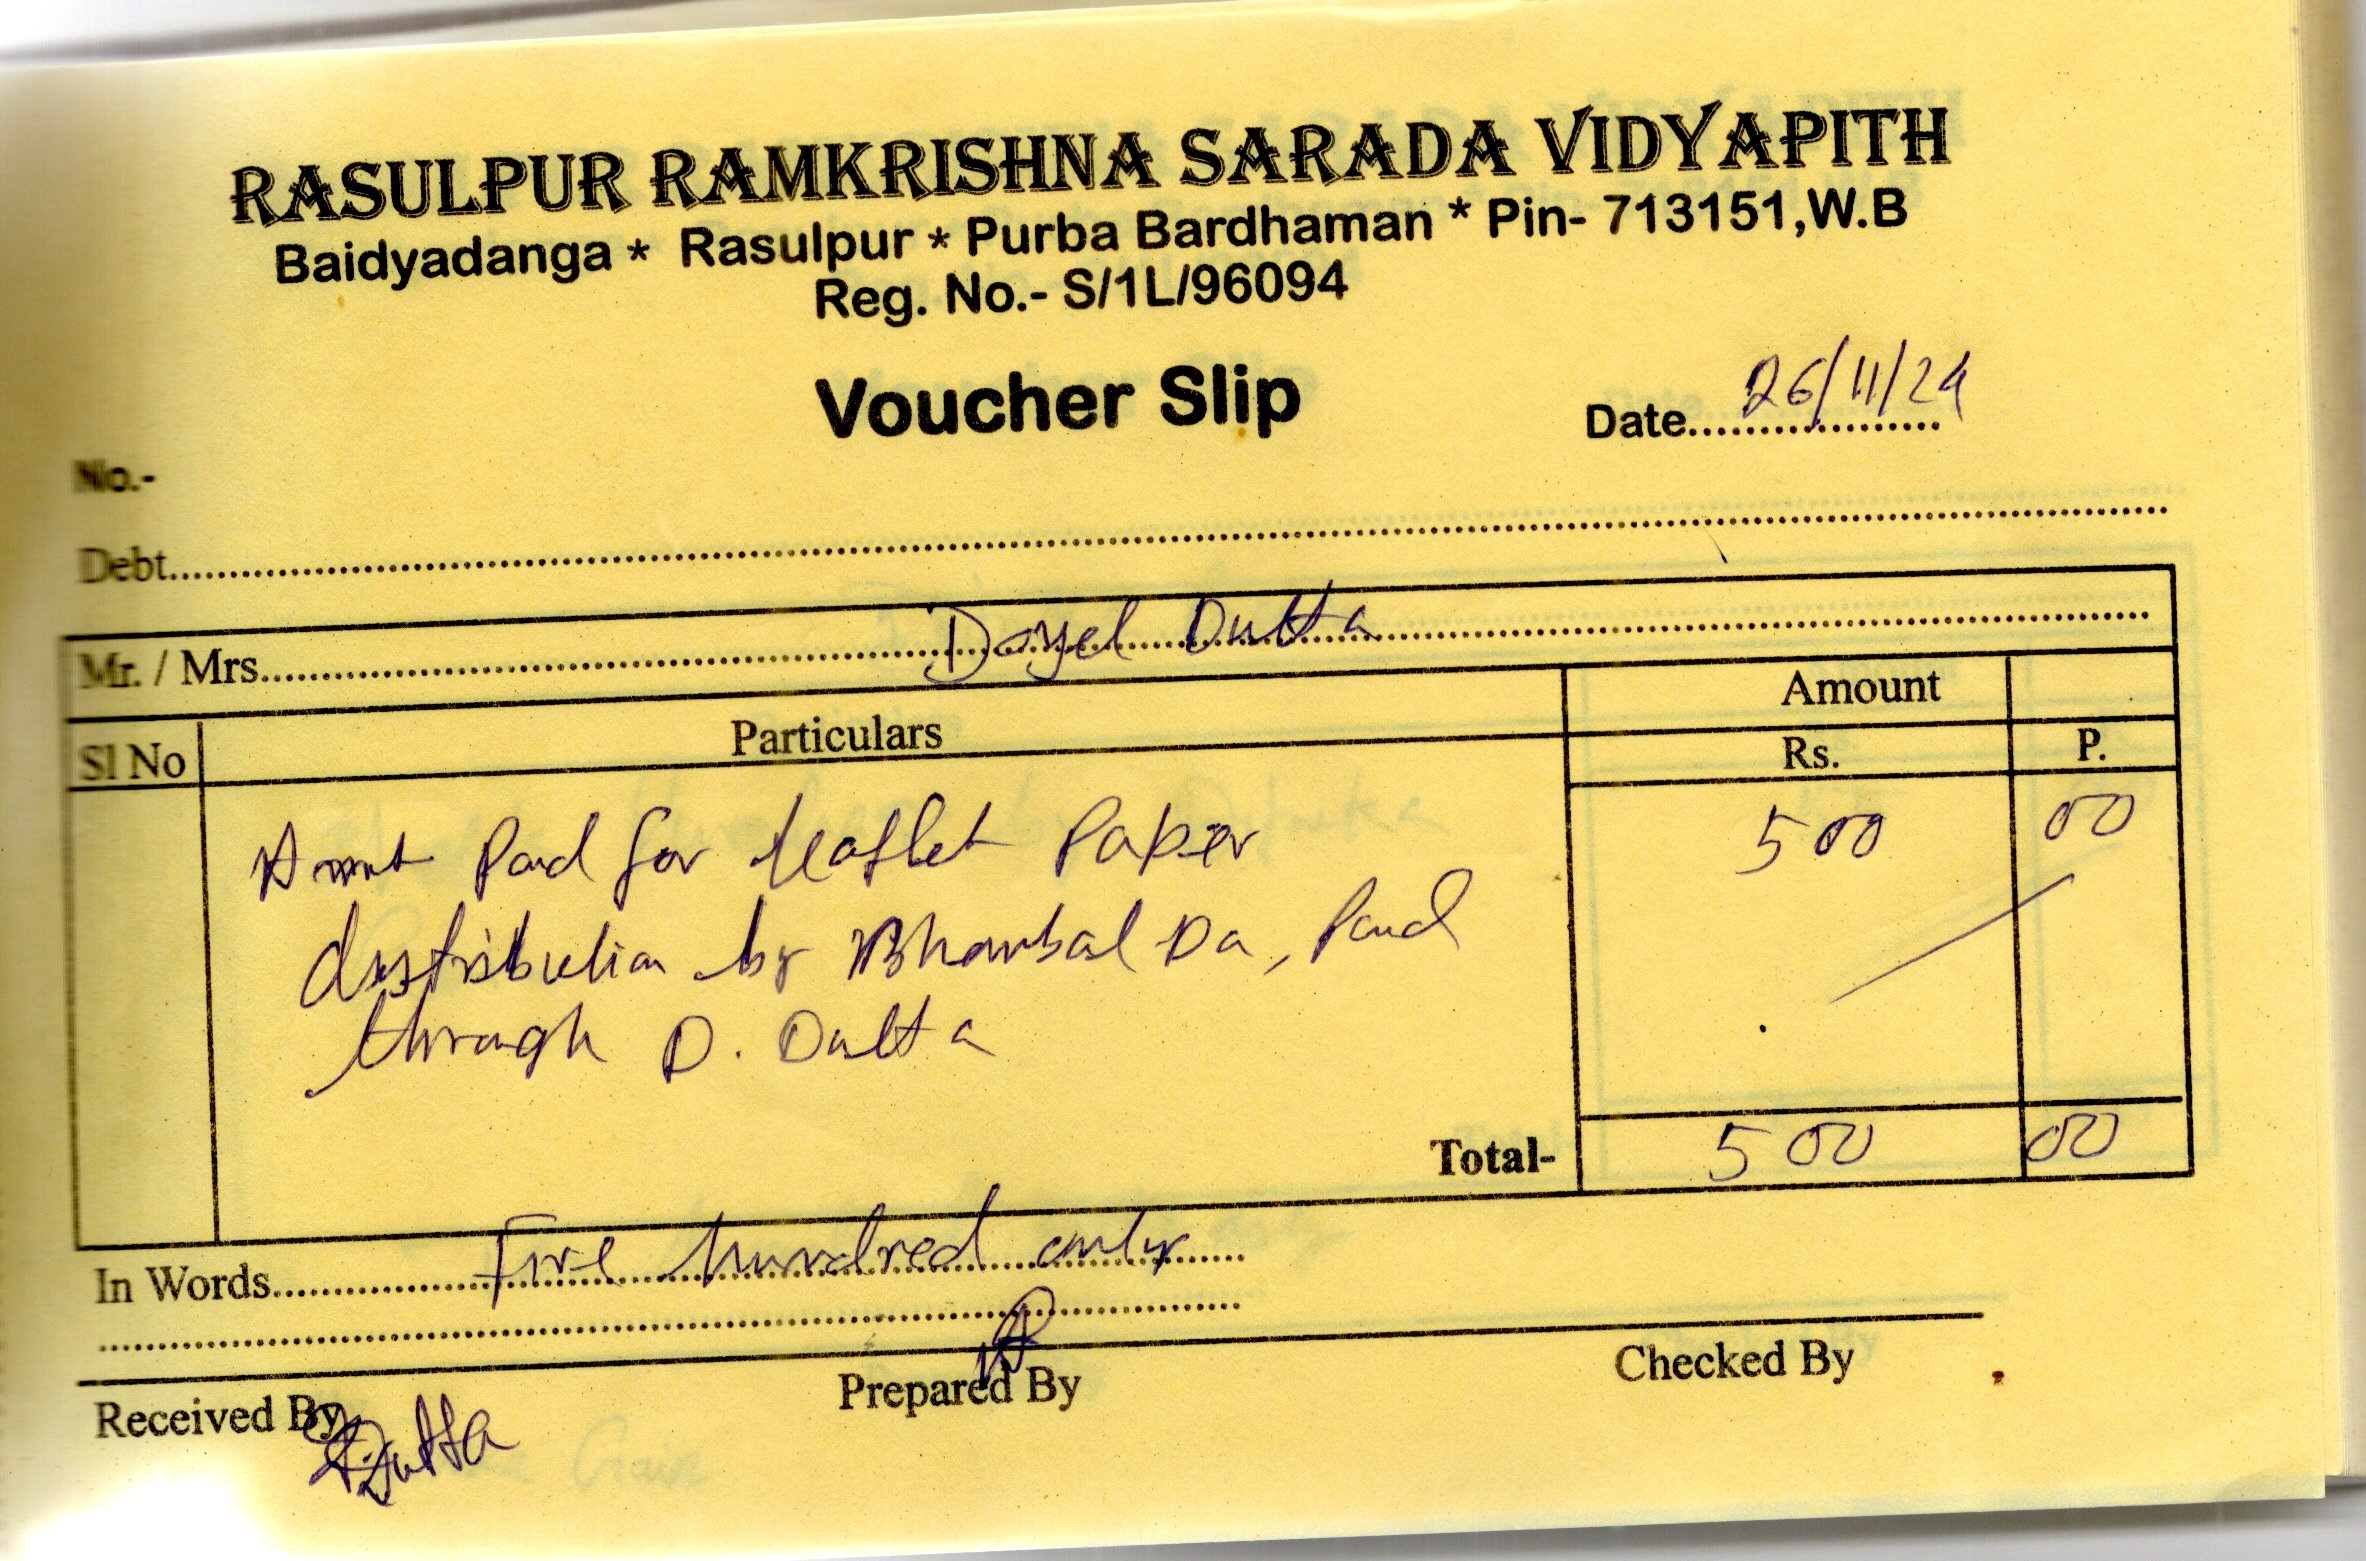 RASULPUR RAMKRISHNA SARADA VIDYAPITH
Baidyadanga * Rasulpur * Purba Bardhaman * Pin- 713151,W.B
Reg. No.- S/1L/96094
Voucher Slip
Date...................26/11/24
No.-
Debt
Mr. / Mrs. Doyel Dutta
Sl No Particulars Amount
Rs. P.
Amnt Paid for leaflet Paper 500 00
distribution by Da, Paid
through D. Dutta
Total- 500 00
In Words Five hundred only
Received By Prepared By Checked By
Dutta